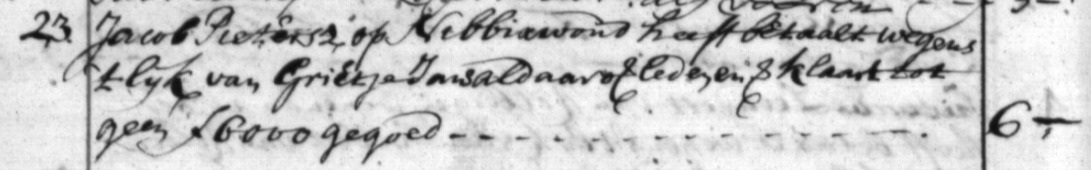 23 Jacob Pieters z: op Nebbixwoud heeft betaalt wegens
t lijk van Grietje Jans aldaar overleden en verklaart tot
geen f 6000 gegoed - - - - - - - - - - - - 6 -,-